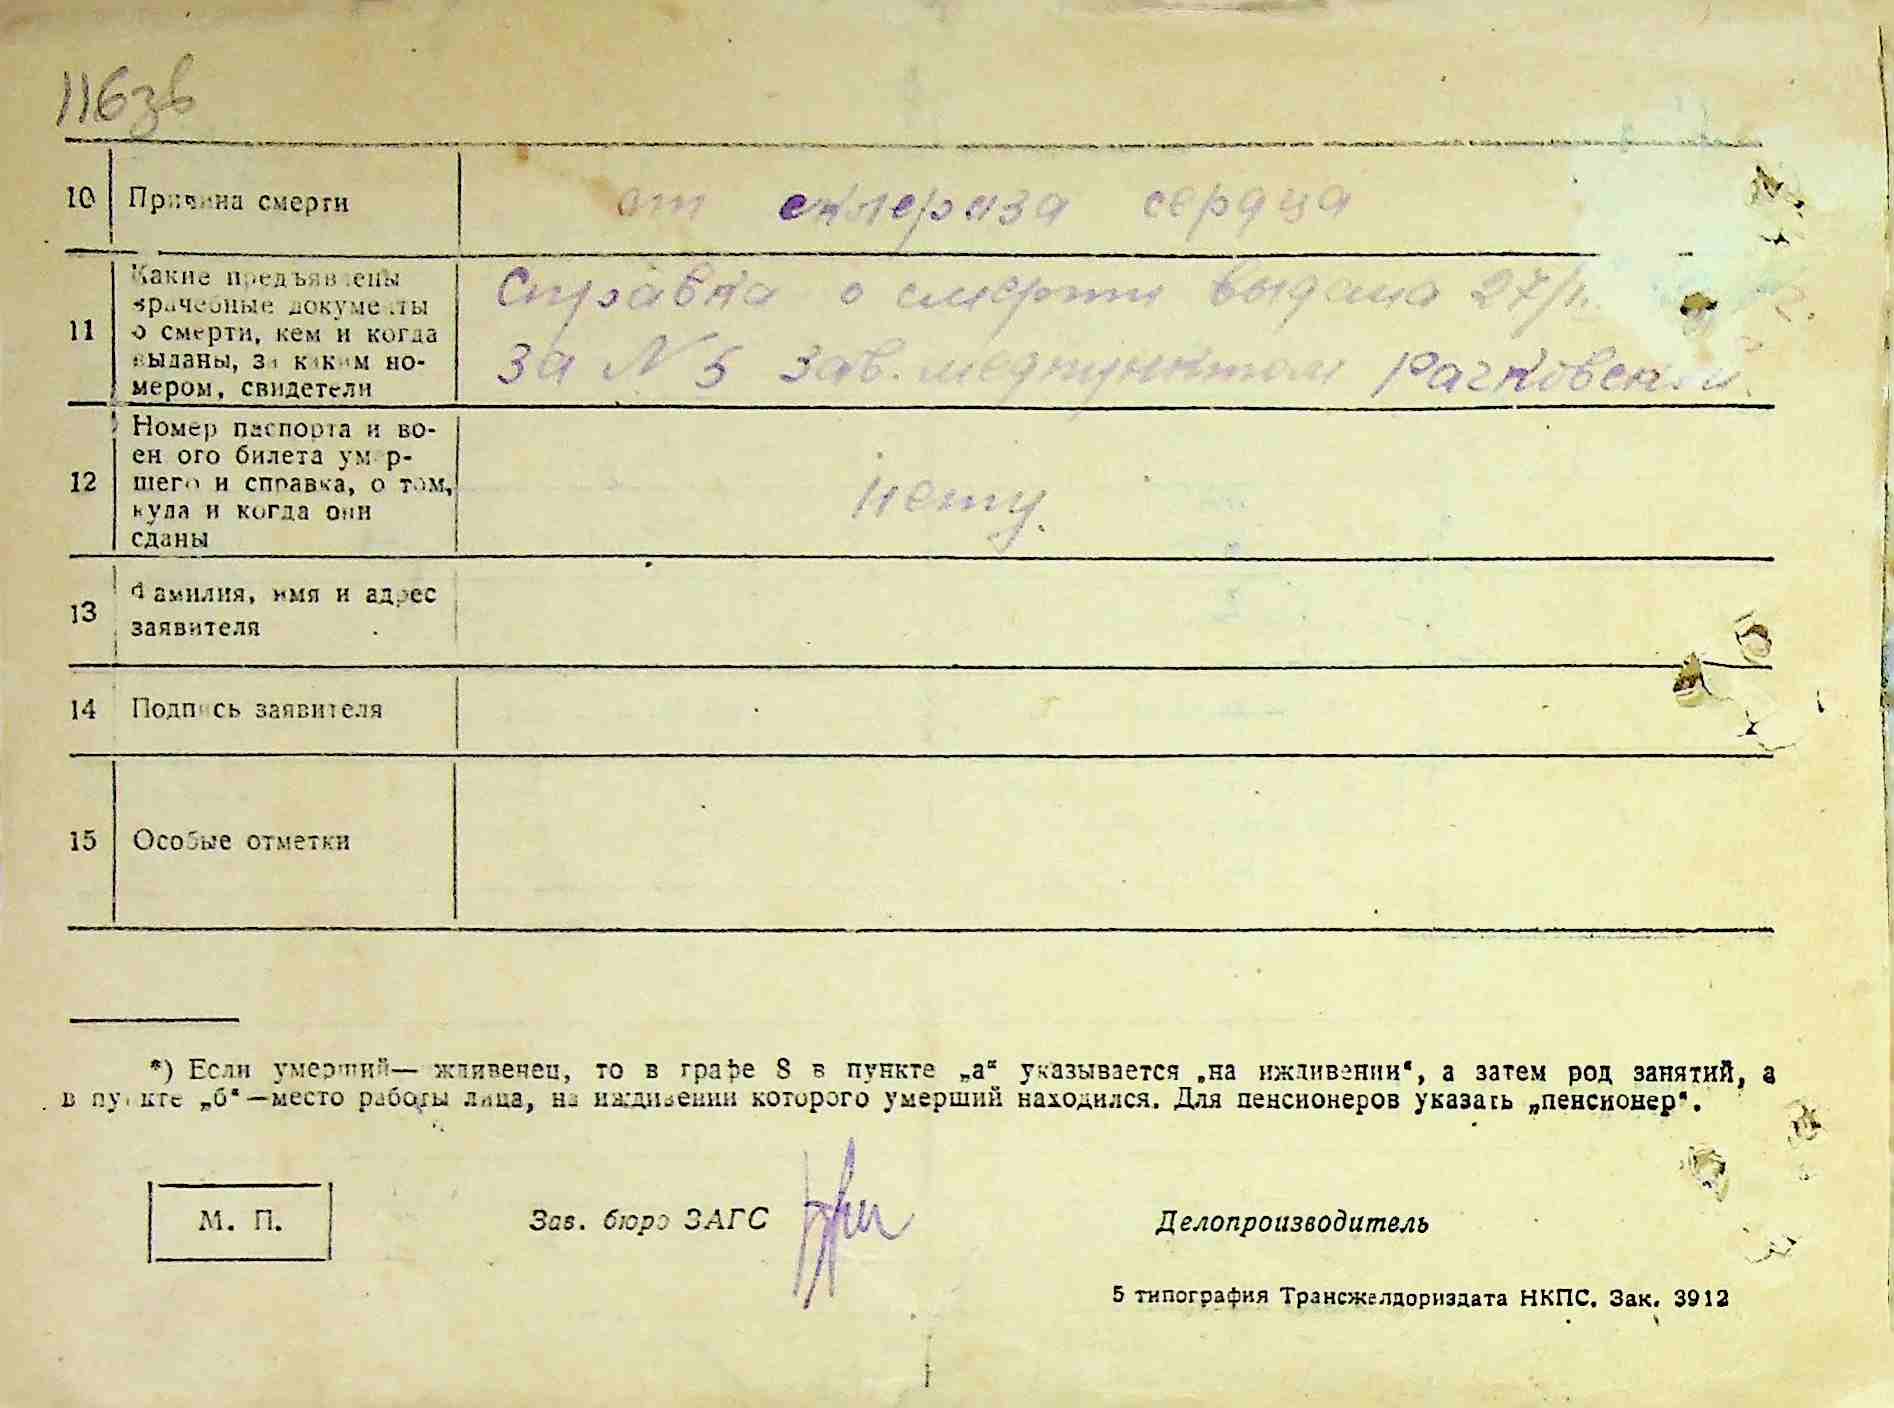 116зв
10 Причина смерти от склероза сердца
11 Какие предъявлены
врачебные документы
о смерти, кем и когда
выданы, за каким но-
мером, свидетели
Справка о смерти выдана 27/
за N 5 зав. медпунктом Рачковской
12 Номер паспорта и во-
енного билета умер-
шего и справка, о том,
куда и когда они
сданы
нету.
13 Фамилия, имя и адрес
заявителя
14 Подпись заявителя
15 Особые отметки
*) Если умерший— иждивенец, то в графе 8 в пункте „а“ указывается „на иждивении“, а затем род занятий, а
в пункте „б“—место работы лица, на иждивении которого умерший находился. Для пенсионеров указать „пенсионер“.
М. П. Зав. бюро ЗАГС Делопроизводитель
5 типография Трансжелдориздата НКПС. Зак. 3912